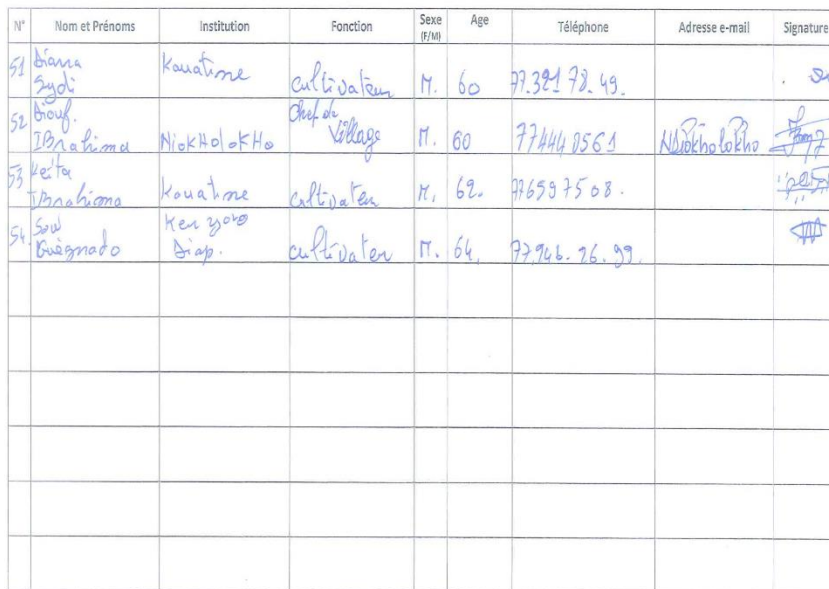 N° Nom et Prénoms Institution Fonction Sexe (F/M) Age Téléphone Adresse e-mail Signature
51 Diarra Sydi Kouatine cultivateur M. 60 77.321 78.49.
52 Diouf. IBrahima NioKHoloKHo Chef de Village M. 60 77444 0561 Ndiokholokho
53 Keïta IBrahima Kouatine cultivateu M. 62. 776597508.
54. Sow Diap. cultivateu M. 64. 77.946.26.99.